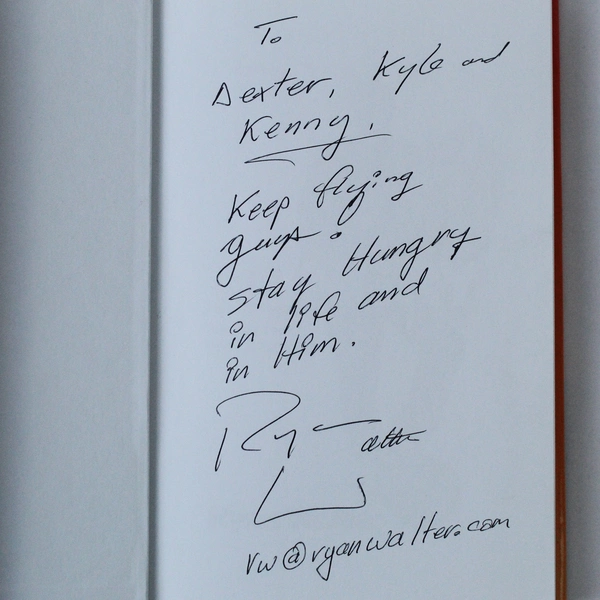 To
Dexter, Kyle and
Kenny.
Keep flying
guys.
stay Hungry
in life and
in Him.
Ry
rw@ryanwalter.com